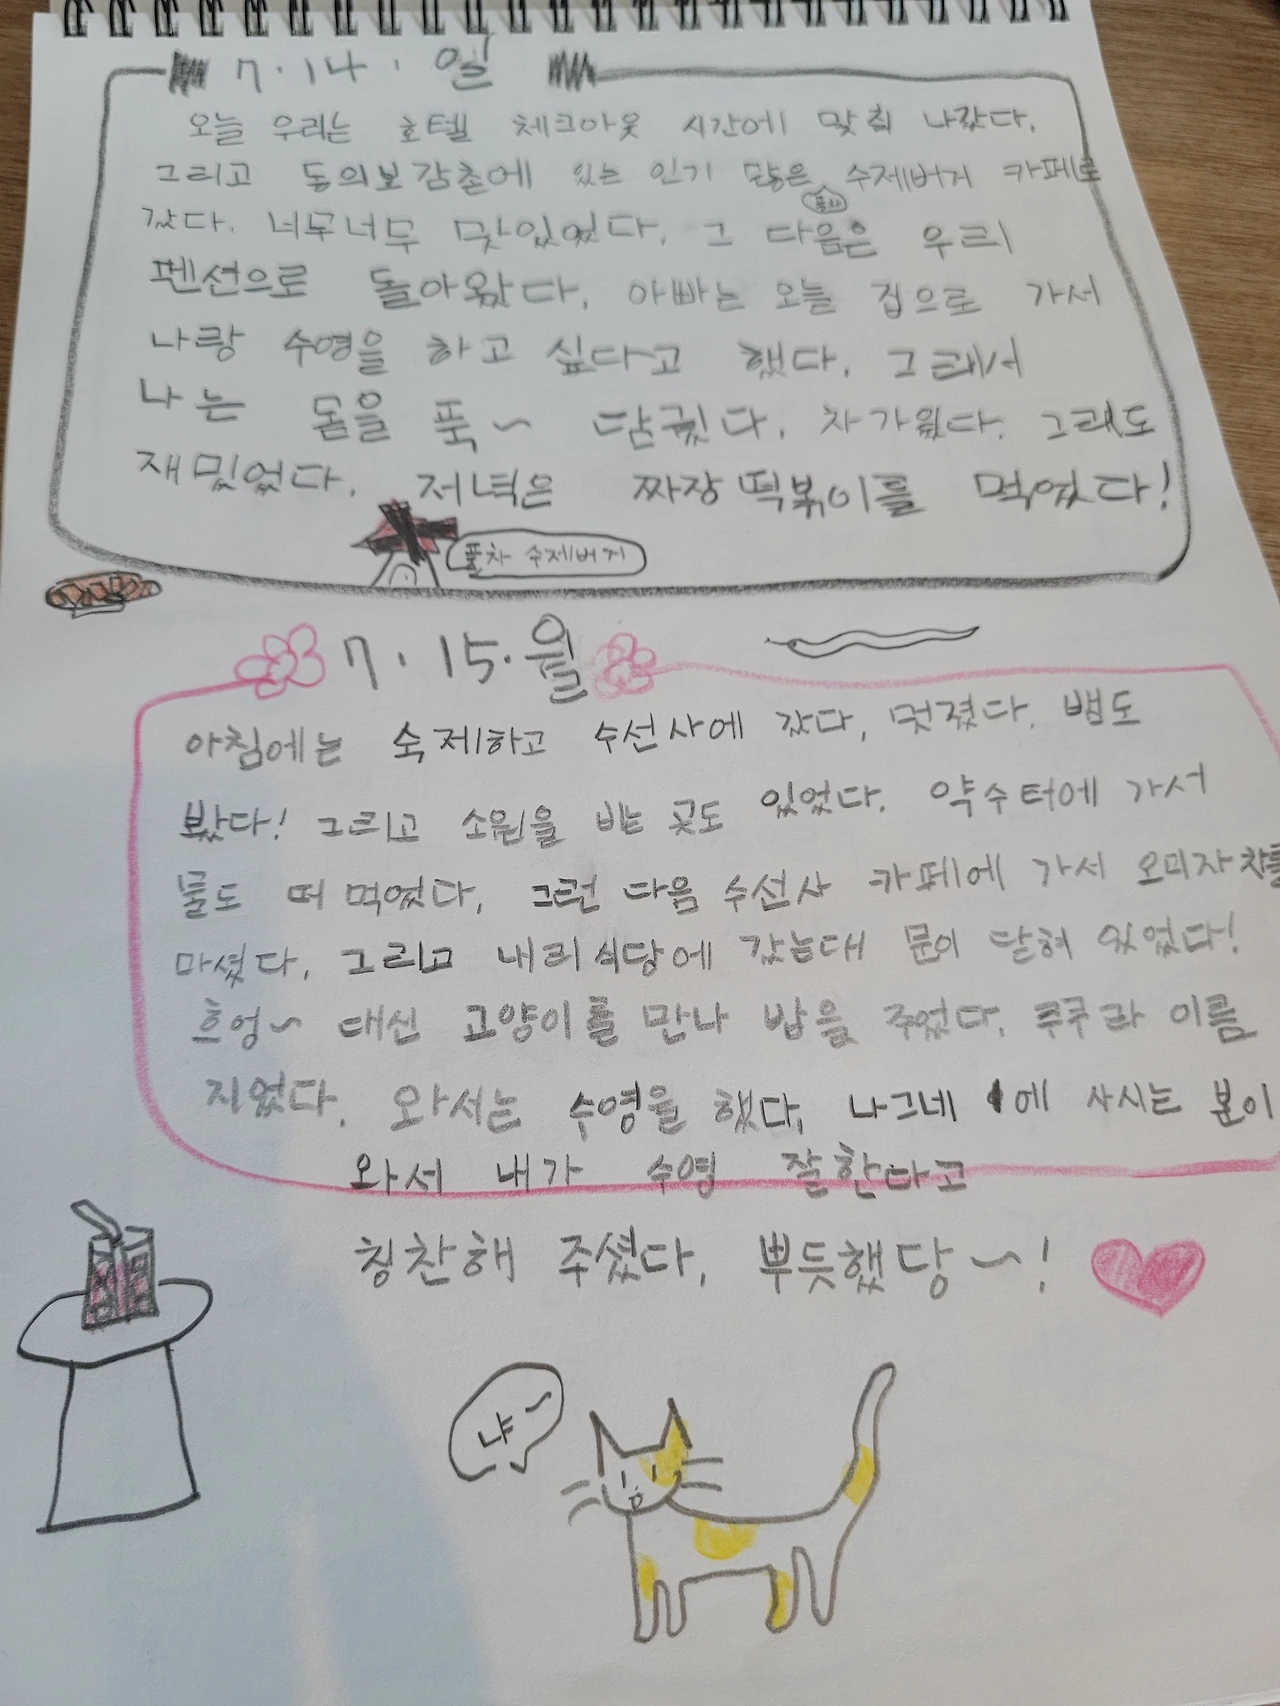 7.14. 일
오늘 우리는 호텔 체크아웃 시간에 맞춰 나갔다.
그리고 동의보감촌에 있는 인기 많은 수제버거 카페로
풍차
갔다. 너무너무 맛있었다. 그 다음은 우리
펜션으로 돌아왔다. 아빠는 오늘 집으로 가서
나랑 수영을 하고 싶다고 했다. 그래서
나는 몸을 푹~ 담궜다. 차가웠다. 그래도
재밌었다. 저녁은 짜장떡볶이를 먹었다!
풍차 수제버거
7.15.월
아침에는 숙제하고 수선사에 갔다, 멋졌다. 뱀도
봤다! 그리고 소원을 비는 곳도 있었다. 약수터에 가서
물도 떠 먹었다. 그런 다음 수선사 카페에 가서 오미자차를
마셨다. 그리고 내리식당에 갔는대 문이 닫혀 있었다!
흐엉~ 대신 고양이를 만나 밥을 주었다. 쿠쿠라 이름
지었다. 와서는 수영을 했다, 나그네 에 사시는 분이
와서 내가 수영 잘한다고
칭찬해 주셨다. 뿌듯했당~!
냐~